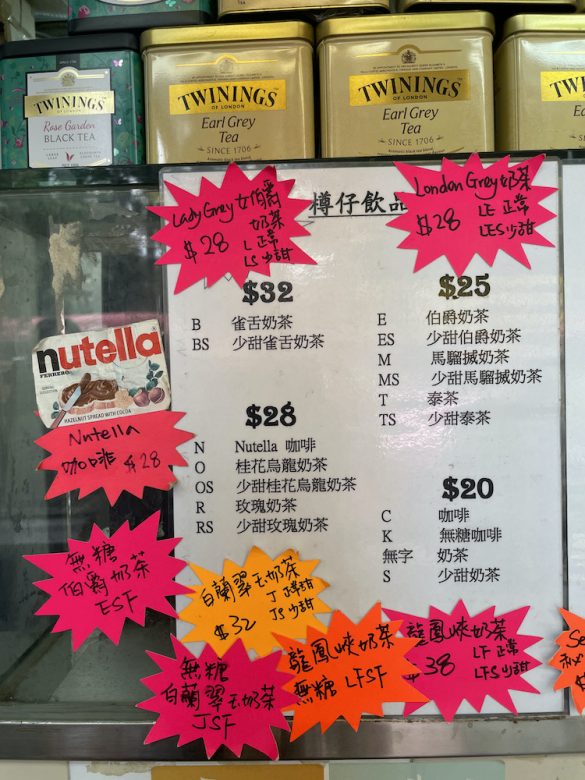 TWININGS
OF LONDON
Rose Garden
BLACK TEA
TWININGS
OF LONDON
Earl Grey
Tea
SINCE 1706
TWININGS
OF LONDON
Earl Grey
Tea
SINCE 1706
Lady Grey 女伯爵
奶茶
$28 L 正常
LS 少甜
樽仔飲品
London Grey 奶茶
$28 LE 正常
LES 少甜
$32
B 雀舌奶茶
BS 少甜雀舌奶茶
$28
N Nutella 咖啡
O 桂花烏龍奶茶
OS 少甜桂花烏龍奶茶
R 玫瑰奶茶
RS 少甜玫瑰奶茶
$25
E 伯爵奶茶
ES 少甜伯爵奶茶
M 馬騮搣奶茶
MS 少甜馬騮搣奶茶
T 泰茶
TS 少甜泰茶
$20
C 咖啡
K 無糖咖啡
無字 奶茶
S 少甜奶茶
nutella
FERRERO
HAZELNUT SPREAD WITH COCOA
Nutella
咖啡 $28
無糖
伯爵奶茶
ESF
白蘭翠玉奶茶
J 正常甜
$32 JS 少甜
無糖
白蘭翠玉奶茶
JSF
龍鳳峽奶茶
無糖 LFSF
龍鳳峽奶茶
LF 正常
$38 LFS 少甜